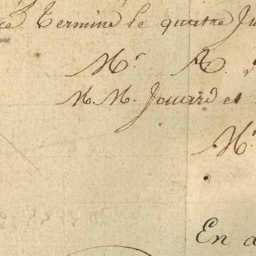 ce Terminé le quatre Ju
Mr. A.
M.M. Jouard et
Mr.
En